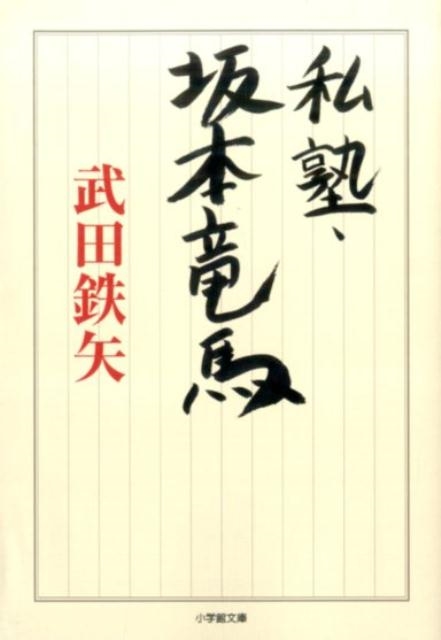 私塾、
坂本竜馬
武田鉄矢
小学館文庫